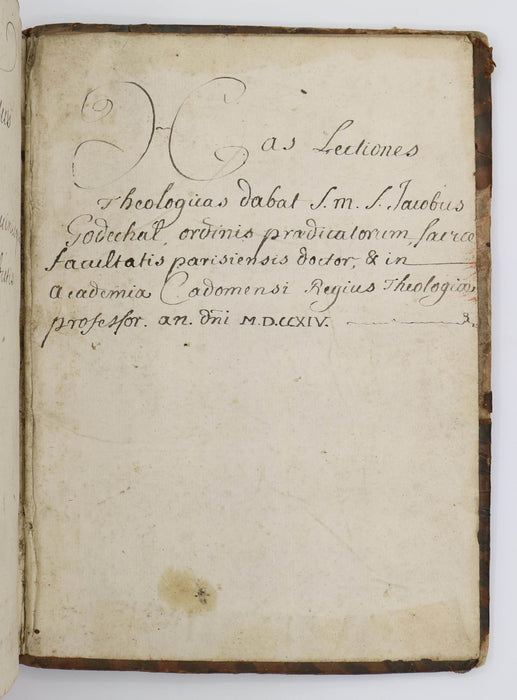 Has Lectiones
Theologicas dabat S. m. S. Jacobus
Godechal, ordinis prædicatorum, sacræ
facultatis parisiensis doctor, & in
academia Cadomensi Regius Theologiæ
professor. an. dni M.D.CCXIV.